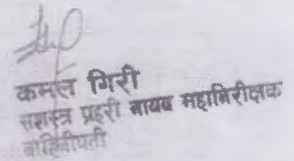 कमल गिरी
सशस्त्र प्रहरी नायब महानिरीक्षक
बाहिनीपती